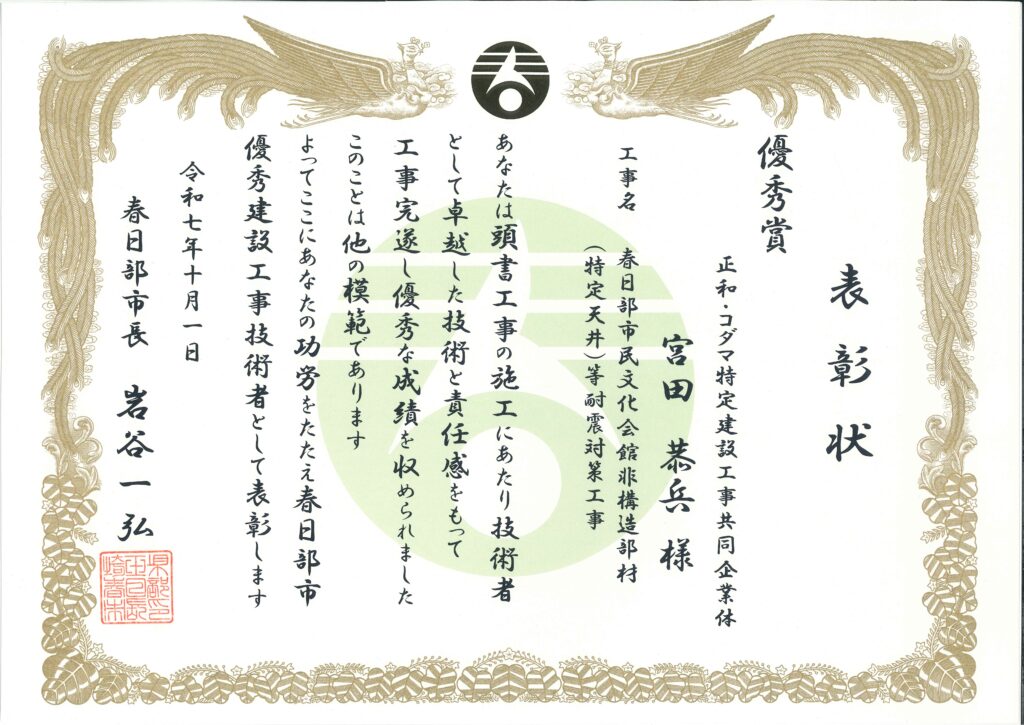 表彰状
優秀賞
正和・コダマ特定建設工事共同企業体
宮田 恭兵 様
工事名 春日部市民文化会館非構造部材
(特定天井)等耐震対策工事
あなたは頭書工事の施工にあたり技術者
として卓越した技術と責任感をもって
工事完遂し優秀な成績を収められました
このことは他の模範であります
よってここにあなたの功労をたたえ春日部市
優秀建設工事技術者として表彰します
令和七年十月一日
春日部市長 岩谷一弘